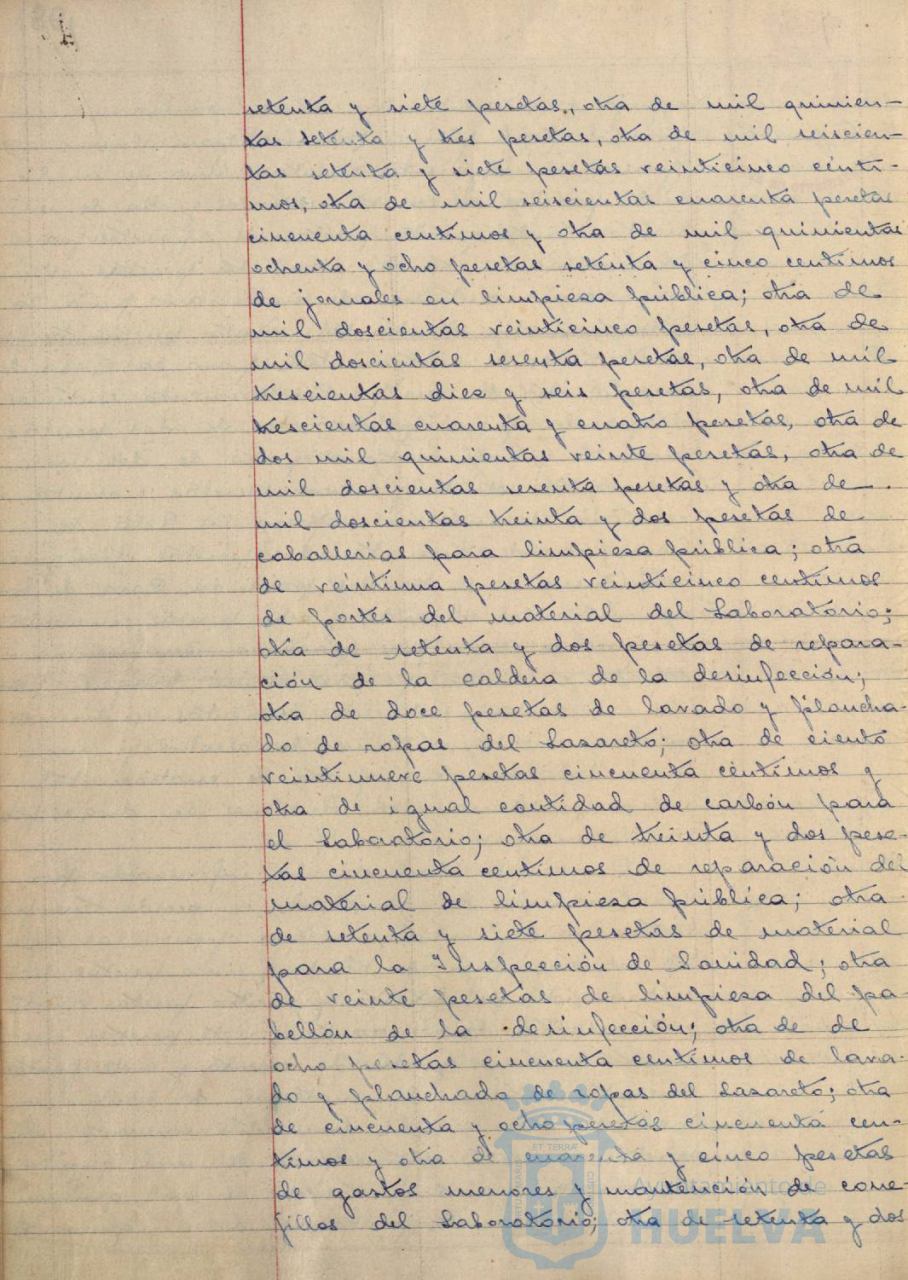 setenta y siete pesetas, otra de mil quinien-
tas setenta y tres pesetas, otra de mil seiscien-
tas setenta y siete pesetas veinticinco cénti-
mos, otra de mil seiscientas cuarenta pesetas
cincuenta centimos y otra de mil quinientas
ochenta y ocho pesetas setenta y cinco centimos
de jornales en limpieza pública; otra de
mil doscientas veinticinco pesetas, otra de
mil doscientas sesenta pesetas, otra de mil
trescientas diez y seis pesetas, otra de mil
trescientas cuarenta y cuatro pesetas, otra de
dos mil quinientas veinte pesetas, otra de
mil doscientas sesenta pesetas y otra de
mil doscientas treinta y dos pesetas de
caballerías para limpieza pública; otra
de veintiuna pesetas veinticinco centimos
de portes del material del Laboratorio;
otra de setenta y dos pesetas de repara-
ción de la caldera de la desinfección;
otra de doce pesetas de lavado y plancha-
do de ropas del Lazareto; otra de ciento
veintinueve pesetas cincuenta céntimos y
otra de igual cantidad de carbón para
el Laboratorio; otra de treinta y dos pese-
tas cincuenta centimos de reparación del
material de limpieza pública; otra
de setenta y siete pesetas de material
para la Inspección de Sanidad; otra
de veinte pesetas de limpieza del pa-
bellón de la desinfección; otra de de
ocho pesetas cincuenta centimos de lava-
do y planchado de ropas del Lazareto; otra
de cincuenta y ocho pesetas cincuenta cen-
timos y otra de cuarenta y cinco pesetas
de gastos menores y mantención de cone-
jillos del Laboratorio; otra de setenta y dos
Ayuntamiento de
HUELVA